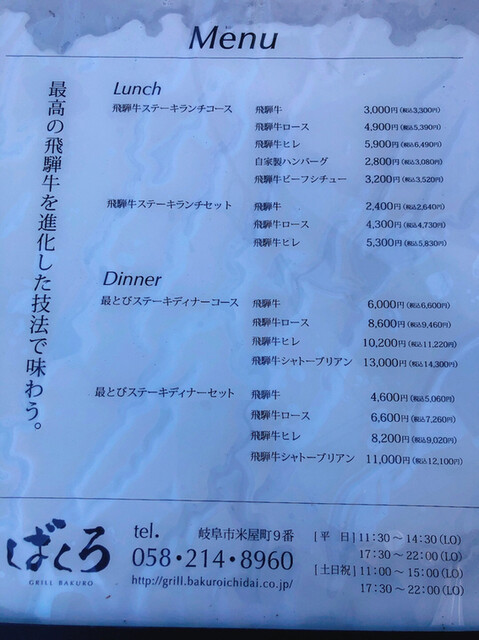 Menu
最高の飛騨牛を進化した技法で味わう。
Lunch
飛騨牛ステーキランチコース 飛騨牛 3,000円(税込3,300円)
飛騨牛ロース 4,900円(税込5,390円)
飛騨牛ヒレ 5,900円(税込6,490円)
自家製ハンバーグ 2,800円(税込3,080円)
飛騨牛ビーフシチュー 3,200円(税込3,520円)
飛騨牛ステーキランチセット 飛騨牛 2,400円(税込2,640円)
飛騨牛ロース 4,300円(税込4,730円)
飛騨牛ヒレ 5,300円(税込5,830円)
Dinner
最とびステーキディナーコース 飛騨牛 6,000円(税込6,600円)
飛騨牛ロース 8,600円(税込9,460円)
飛騨牛ヒレ 10,200円(税込11,220円)
飛騨牛シャトーブリアン 13,000円(税込14,300円)
最とびステーキディナーセット 飛騨牛 4,600円(税込5,060円)
飛騨牛ロース 6,600円(税込7,260円)
飛騨牛ヒレ 8,200円(税込9,020円)
飛騨牛シャトーブリアン 11,000円(税込12,100円)
ばくろ
GRILL BAKURO
tel. 岐阜市米屋町9番
058・214・8960
http://grill.bakuroichidai.co.jp/
[平 日] 11:30～14:30(LO)
17:30～22:00(LO)
[土日祝] 11:00～15:00(LO)
17:30～22:00(LO)